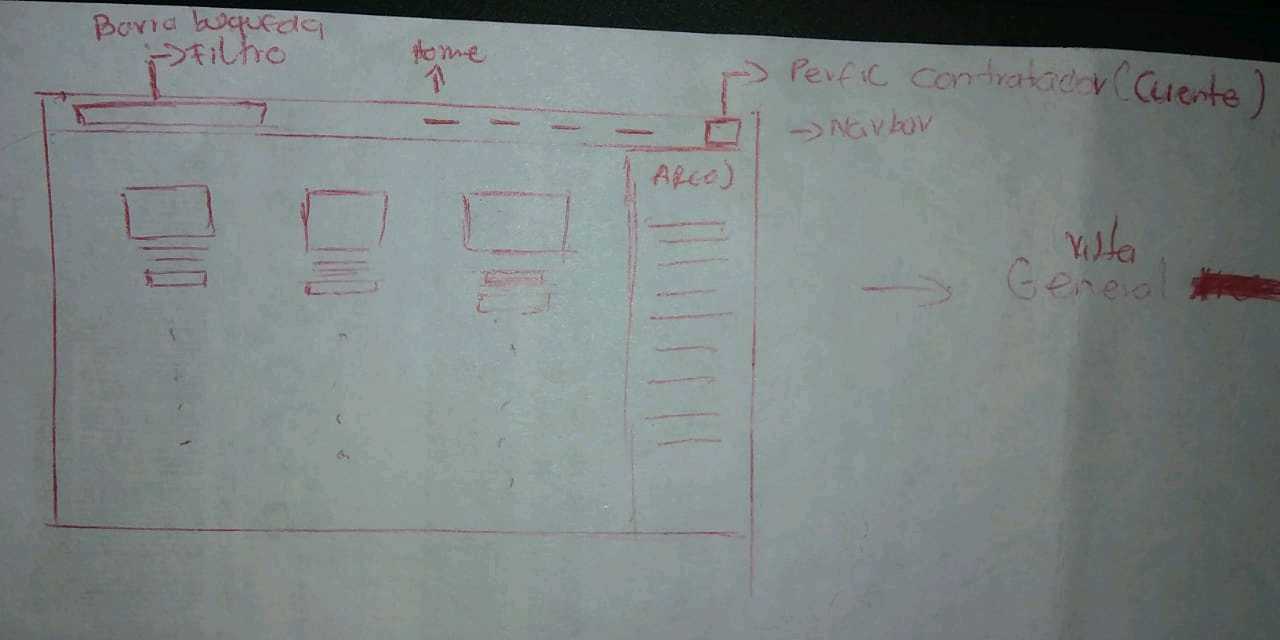 Barra busqueda
→Filtro
Home
→ Perfil contratador (Cliente)
→ Navbar
Vista
General